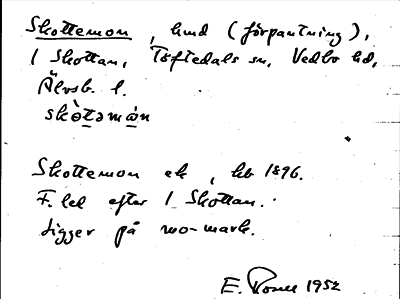 Skottemon, hmd (förpantning),
1 Skottan, Töftedals sn, Vedbo hd,
Älvsb. l.
skòtəmån
Skottemon ek, kb 1896.
F. lel efter 1 Skottan.
Ligger på mo-mark.
E. 1952